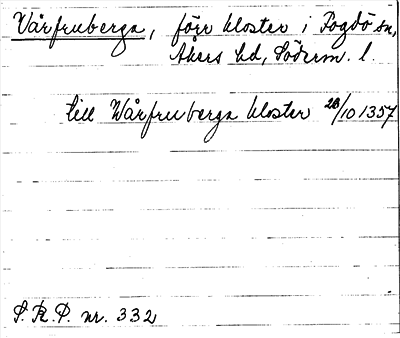 Vårfruberga, förr kloster i Fogdö sn,
Åkers hd, Söderm. l.
till Wårfruberga kloster 28/10 1357
S.R.P. nr. 332